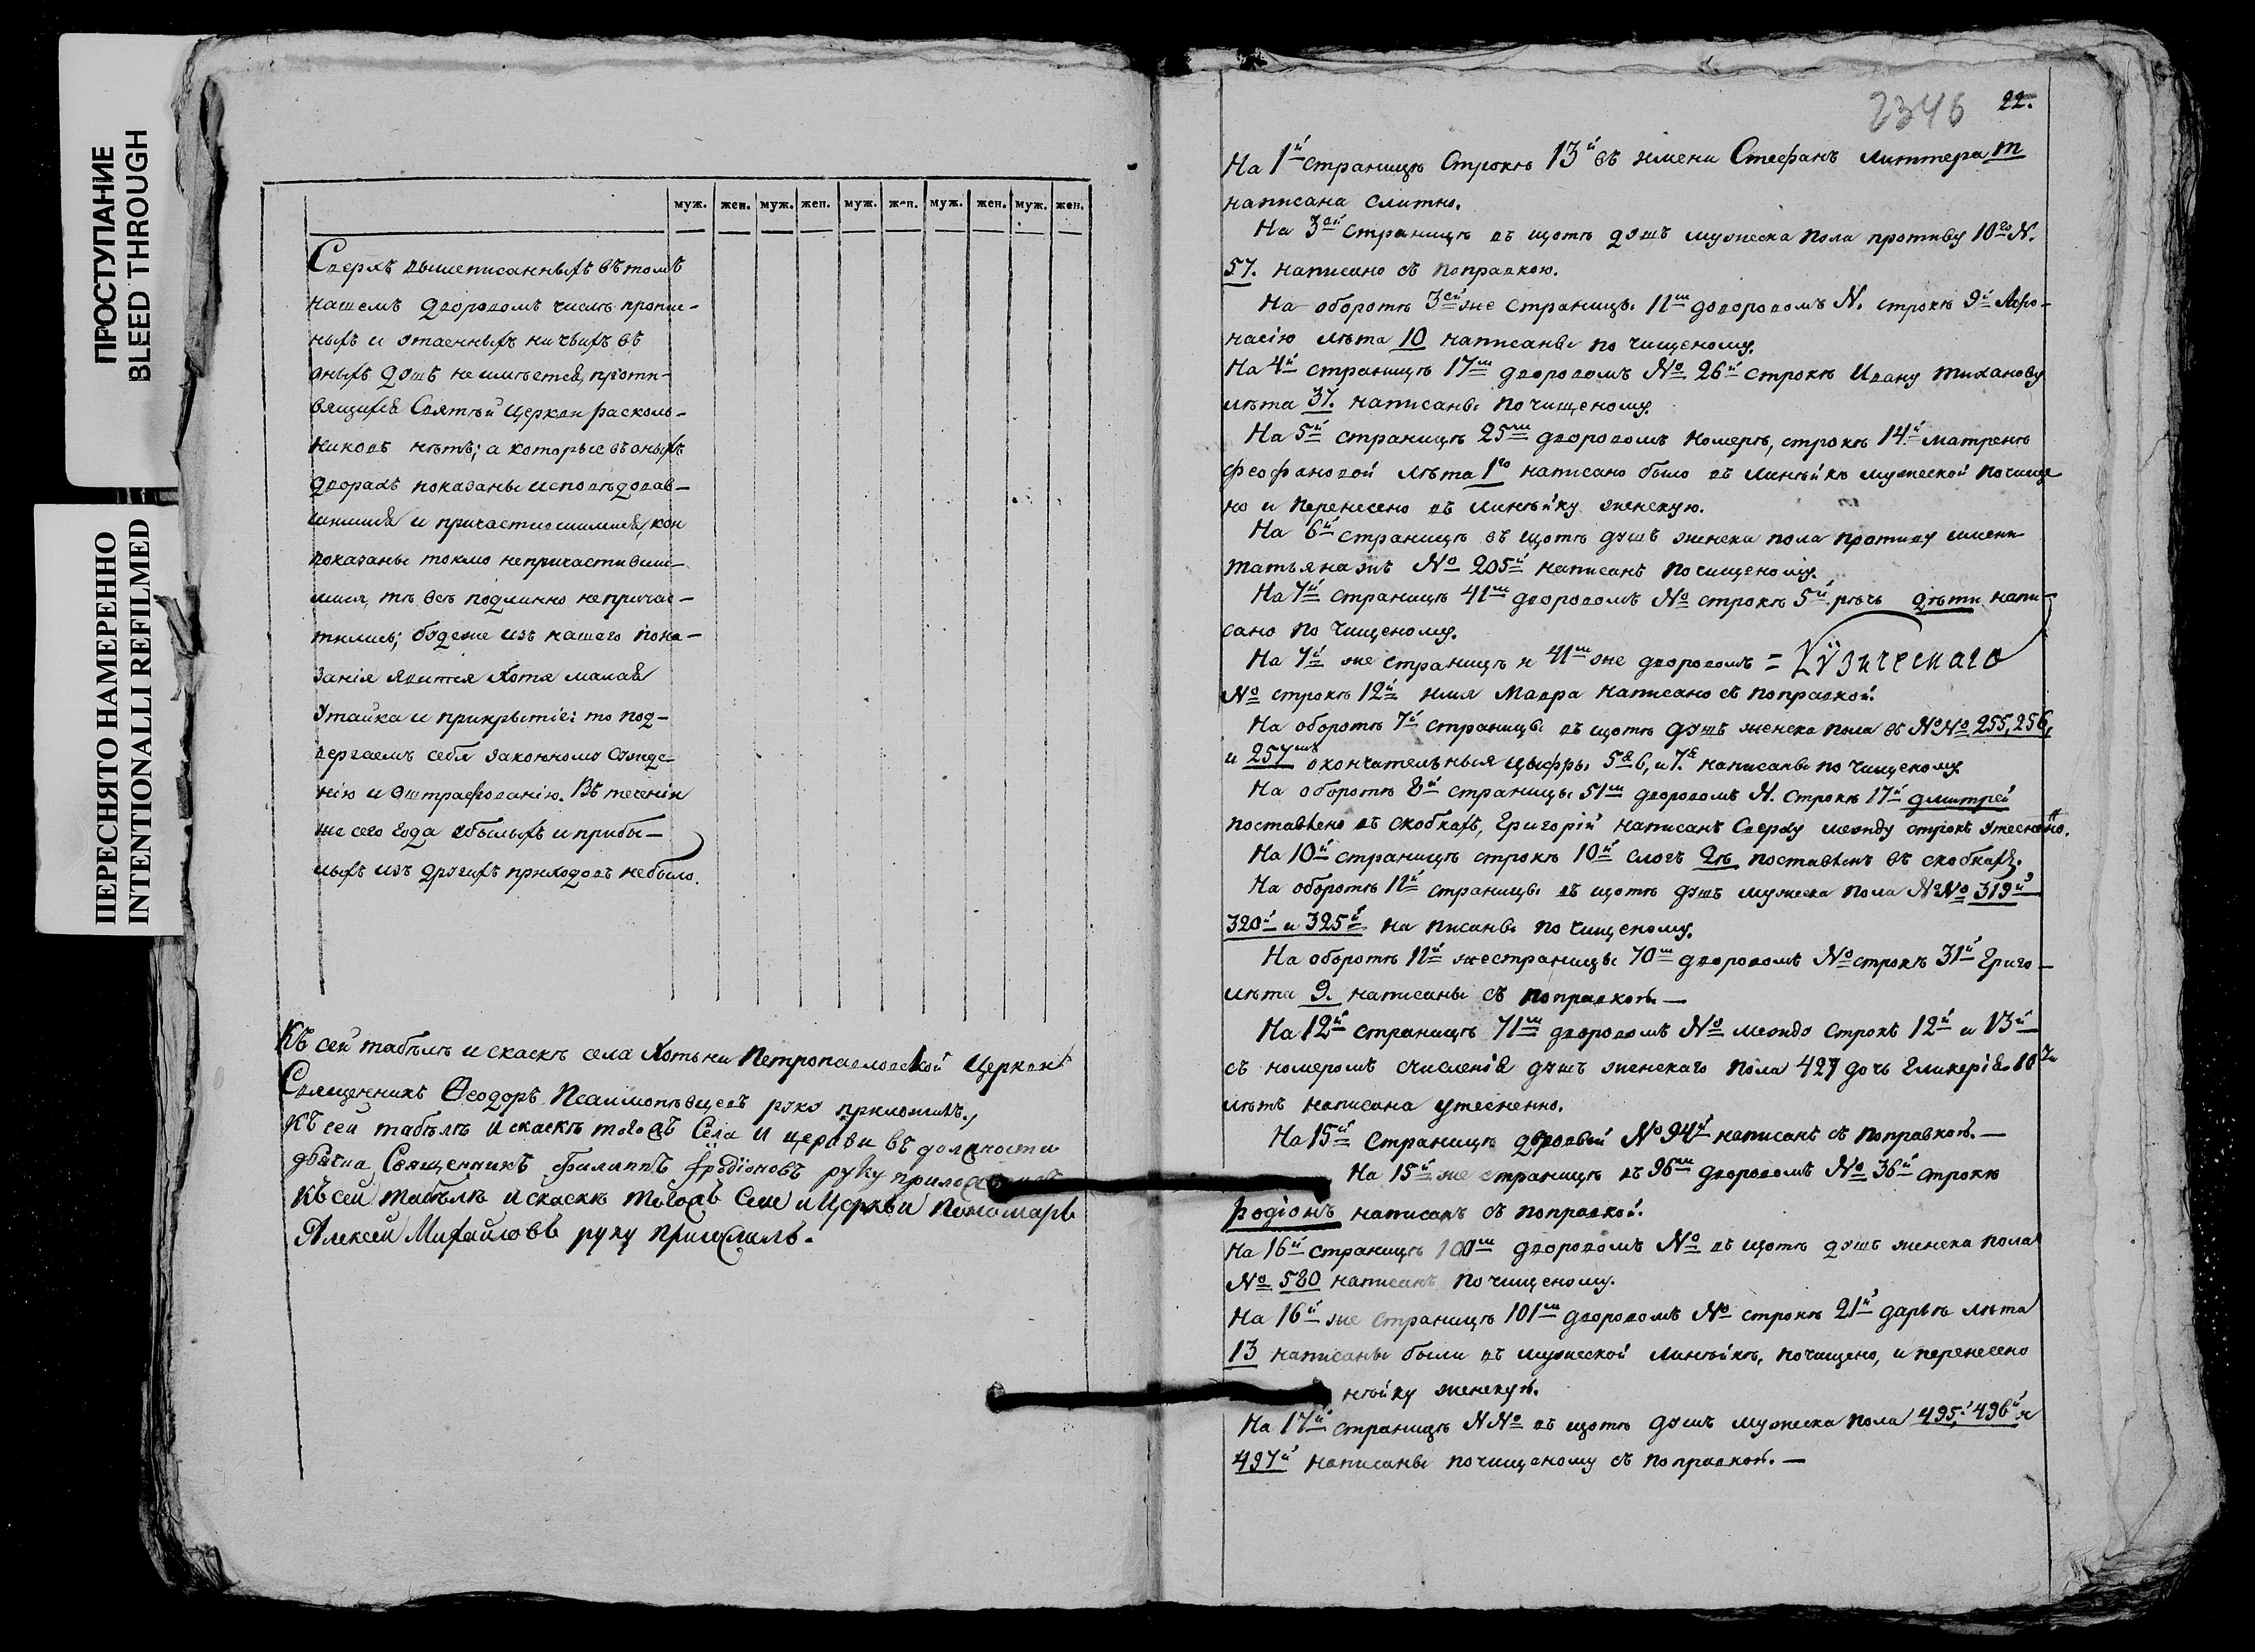 ПРОСТУПАНИЕ
BLEED THROUGH
ПЕРЕСНЯТО НАМЕРЕННО
INTENTIONALLI REFILMED
муж. жен. муж. жен. муж. жен. муж. жен. муж. жен.
Сверхъ вышеписанныхъ въ томъ
нашемъ дворовомъ числѣ пропис-
ныхъ и утаенныхъ ни чьихъ въ
оныхъ душъ не имѣется, проти-
вящихся Святѣй Церкви расколь-
никовъ нѣтъ; а которые въ оныхъ
дворахъ показаны исповѣдовав-
шимися и причастившимися, кои
показаны токмо непричастивши-
мися, тѣ всѣ подлинно непричас-
тились; будеже изъ нашего пока-
занія явится хотя малая
утайка и прикрытіе: то под-
вергаемъ себя законному сужде-
нію и оштрафованію. Въ теченіи
же сего года убылыхъ и прибы-
лыхъ изъ другихъ приходовъ небыло.
Къ сей табѣлѣ и скаскѣ села Хотьни Петропавловской Церкви
Священникъ Ѳеодоръ Псалмопѣвцевъ руку приложилъ.
Къ сей табѣлѣ и скаскѣ тогожъ Села и церкви въ должности
дьячка Священникъ Филиппъ Иродіоновъ руку приложилъ
Къ сей табѣлѣ и скаскѣ тогожъ Села и Церкви Пономарь
Алексей Михайловъ руку приложилъ.
2346 22.
На 1й страницѣ Строкѣ 13й въ имени Стефанъ литтера т
написана слитно.
На 3ей страницѣ въ щотѣ душъ мужеска пола противу 10го N.
57. написано съ поправкою.
На оборотѣ 3ей же страницы 11м дворовомъ N. строкѣ 9й Афо-
насію лѣта 10 написаны по чищеному.
На 4й страницѣ 17м дворовомъ № 26й строкѣ Ивану тиханову
лѣта 37. написаны по чищеному.
На 5й страницѣ 25м дворовомъ номерѣ, строкѣ 14й матренѣ
феофановой лѣта 1го написано было въ линѣйкѣ мужеской почище
но и перенесено въ линѣйку женскую.
На 6й страницѣ въ щотѣ душъ женска пола противу имени
татьяна № 205й написанъ по чищеному.
На 7й страницѣ 41м дворовомъ № строкѣ 5й рѣчь дѣти напи-
сано по чищеному.
На 7й же страницѣ и 41м же дворовомъ =
№ строкѣ 12й имя Мавра написано съ поправкой.
На оборотѣ 7й страницы въ щотѣ душъ женска пола въ №№ 255, 256,
и 257мъ окончательныя цыфры 5я 6, и 7я написаны по чищеному
На оборотѣ 8й страницы 51м дворовомъ N. строкѣ 17й дмитрей
поставлено въ скобкахъ, Григорій написанъ Сверху между строкъ утесненно.
На 10й страницѣ строкѣ 10й слогъ дѣ поставленъ въ скобкахъ.
На оборотѣ 11й страницы въ щотѣ душъ мужеска пола №№ 319й
320й и 325й на писаны по чищеному.
На оборотѣ 11й же страницы 70м дворовомъ № строкѣ 31й Григо-
лѣта 9. написаны съ поправкой.—
На 12й страницѣ 71м дворовомъ № между строкъ 12й и 13й
съ номеромъ счисленія душъ женскаго пола 427 дочь Гликерія 10ти
лѣтъ написана утесненно.
На 15й страницѣ дворовый № 94й написанъ съ поправкой.—
На 15й же страницѣ въ 96м дворовомъ № 36й строкѣ
Родіонъ написанъ съ поправкой.
На 16й страницѣ 100м дворовомъ № въ щотѣ душъ женска пола
№ 580 написанъ по чищеному.
На 16й же страницѣ 101м дворовомъ № строкѣ 21й дарьѣ лѣта
13 написаны были въ мужеской линѣйкѣ, почищено, и перенесено
нѣйку женскую.
На 17й страницѣ №№ въ щотѣ душъ мужеска пола 495й 496й и
497й написаны почищеному съ поправкой.—